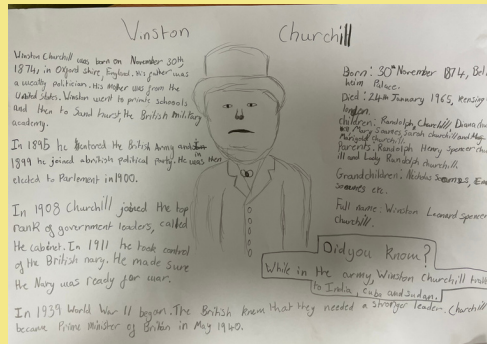 Winston Churchill
Winston Churchill was born on November 30th
1874, in Oxford shire, England. His father was
a wealty politician. His mother was from the
United States. Winston went to private schools
and then to Sand hurst, the British military
academy.
In 1895 he entered the British Army and
1899 he joined a british political party. He was then
elected to Parlement in 1900.
In 1908 Churchill joined the top
rank of government leaders, called
the cabinet. In 1911 he took control
of the British navy. He made sure
the Navy was ready for war.
In 1939 World War II began. The British knew that they needed a stronger leader. Churchill
became Prime Minister of Britain in May 1940.
Born: 30th November 1874,
heim Palace.
Died: 24th January 1965,
London.
Children: Randolph, Churchill,
Mary Soames, Sarah churchill and
Marigold Churchill.
Parents: Randolph Henry spencer
ill and Lady Randolph churchill.
Grandchildren: Nicholas Soames,
soames etc.
Full name: Winston Leonard spencer
Churchill.
Did you know?
While in the army, Winston Churchill
to India, Cuba and Sudan.